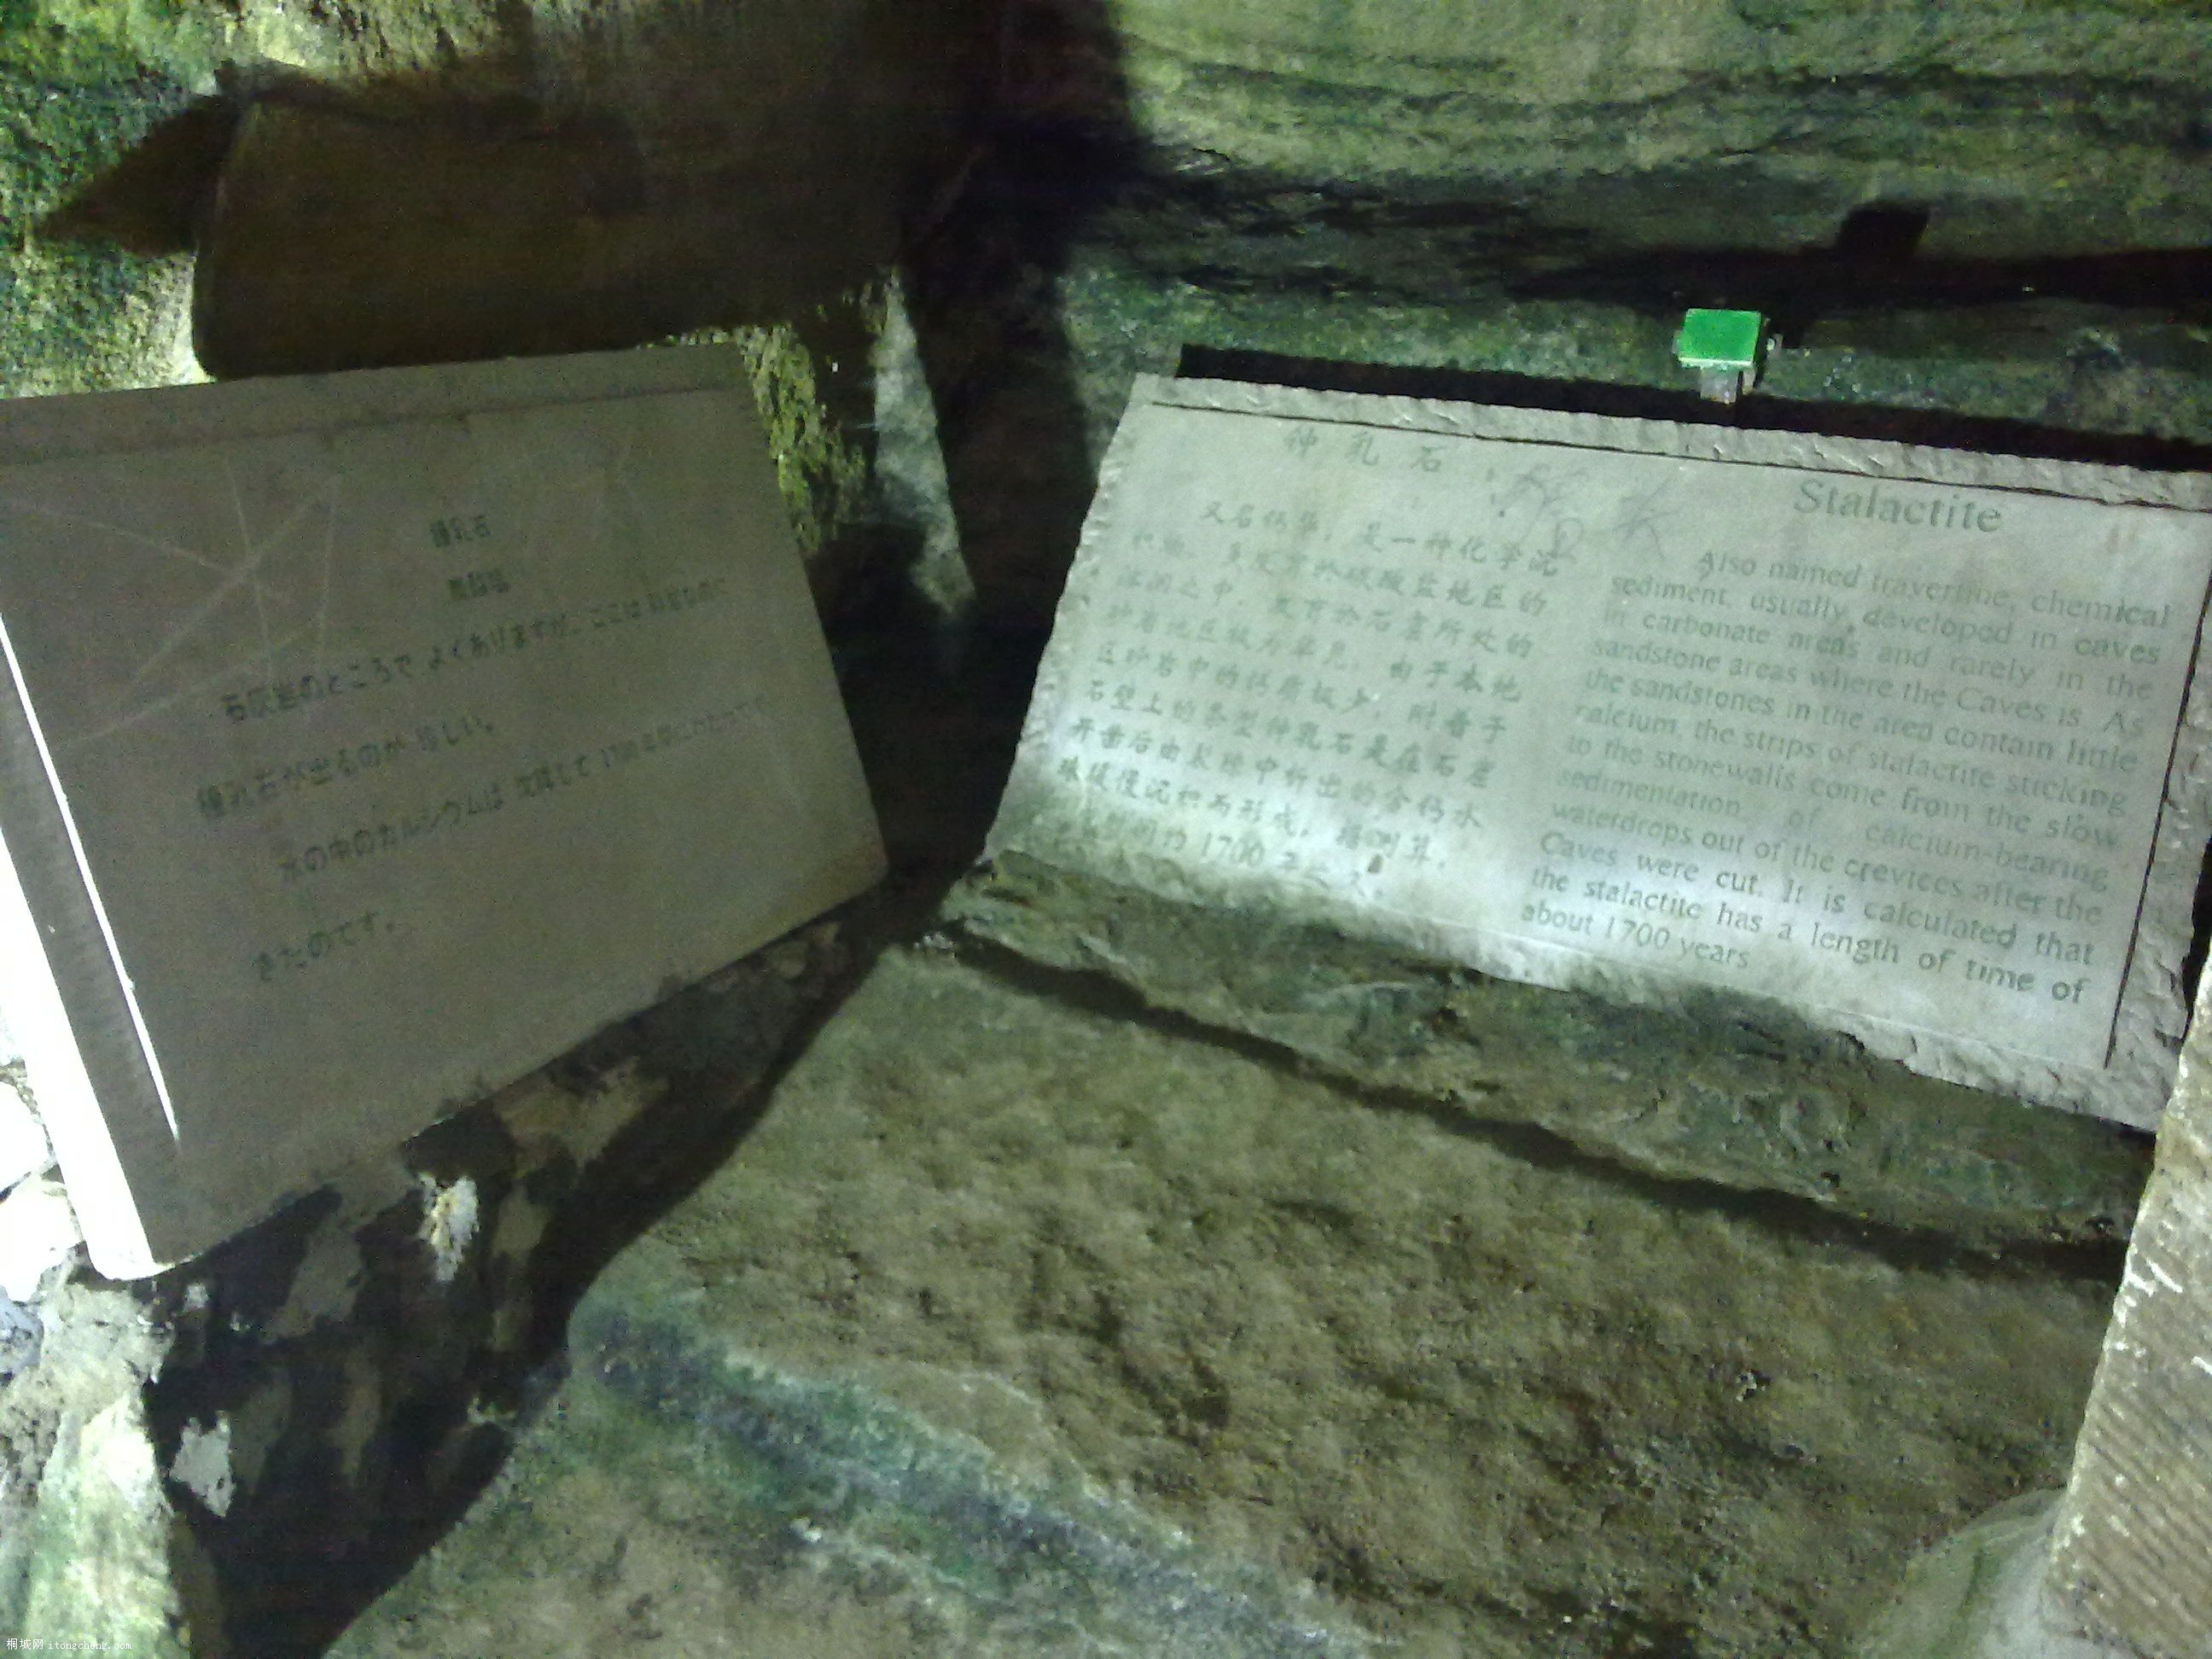 鍾乳石
石灰岩のところで よくありますが、ここは
鍾乳石が出るのが 珍しい。
水の中のカルシウムは 沈殿して 1700年間にわたって
きたのです。
钟 乳 石
又名钙华，是一种化学沉
积物，多发育于碳酸盐地区的
溶洞之中，发育于石窟所处的
砂岩地区极为罕见，由于本地
区砂岩中的钙质极少，附着于
石壁上的条型钟乳石是在石窟
开凿后由裂隙中析出的含钙水
珠缓慢沉积而形成，据测算，
时间为 1700
Stalactite
Also named travertine, chemical
sediment, usually developed in caves
in carbonate areas and rarely in the
sandstone areas where the Caves is. As
the sandstones in the area contain little
calcium, the strips of stalactite sticking
to the stonewalls come from the slow
sedimentation of calcium-bearing
waterdrops out of the crevices after the
Caves were cut. It is calculated that
the stalactite has a length of time of
about 1700 years
桐城网 itongcheng.com